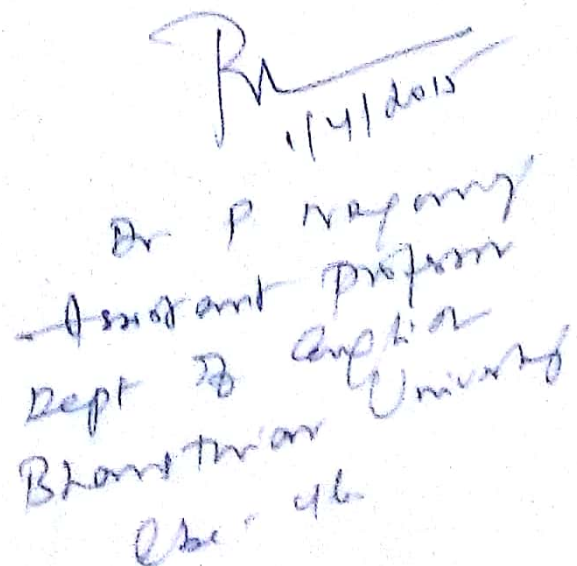 1/4/2015
Dr P Nagaraj
Assistant Professor
Dept of English
Bharathiar University
Cbe - 46